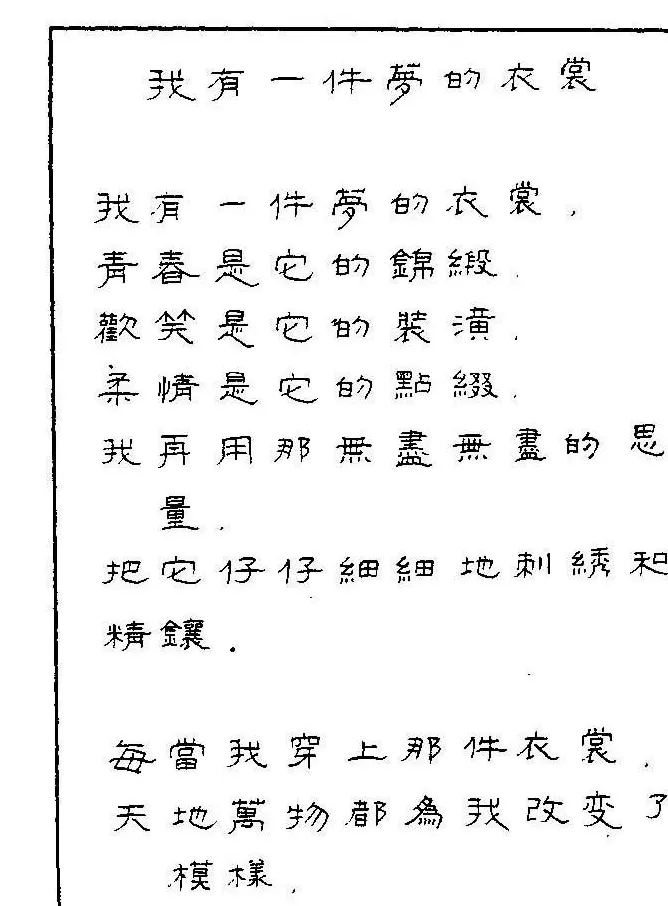 我有一件夢的衣裳
我有一件夢的衣裳，
青春是它的錦緞，
歡笑是它的裝潢，
柔情是它的點綴，
我再用那無盡無盡的思
量，
把它仔仔細細地刺綉和
精鑲．
每當我穿上那件衣裳，
天地萬物都為我改变了
模樣，